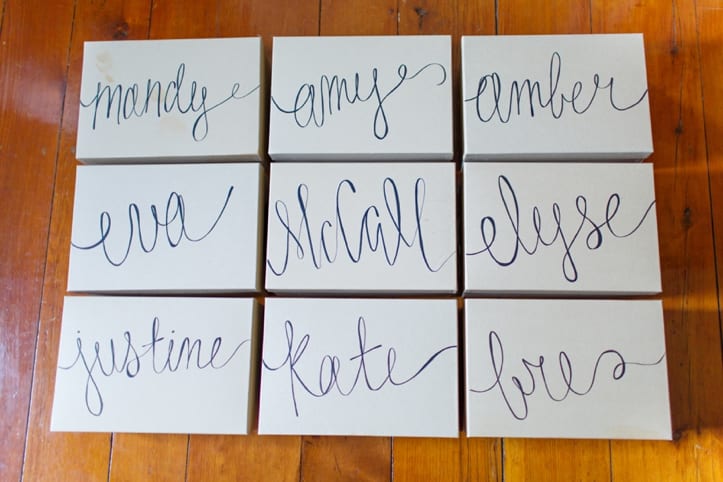 mandy
amy
amber
eva
McCall
elyse
justine
Kate
bre